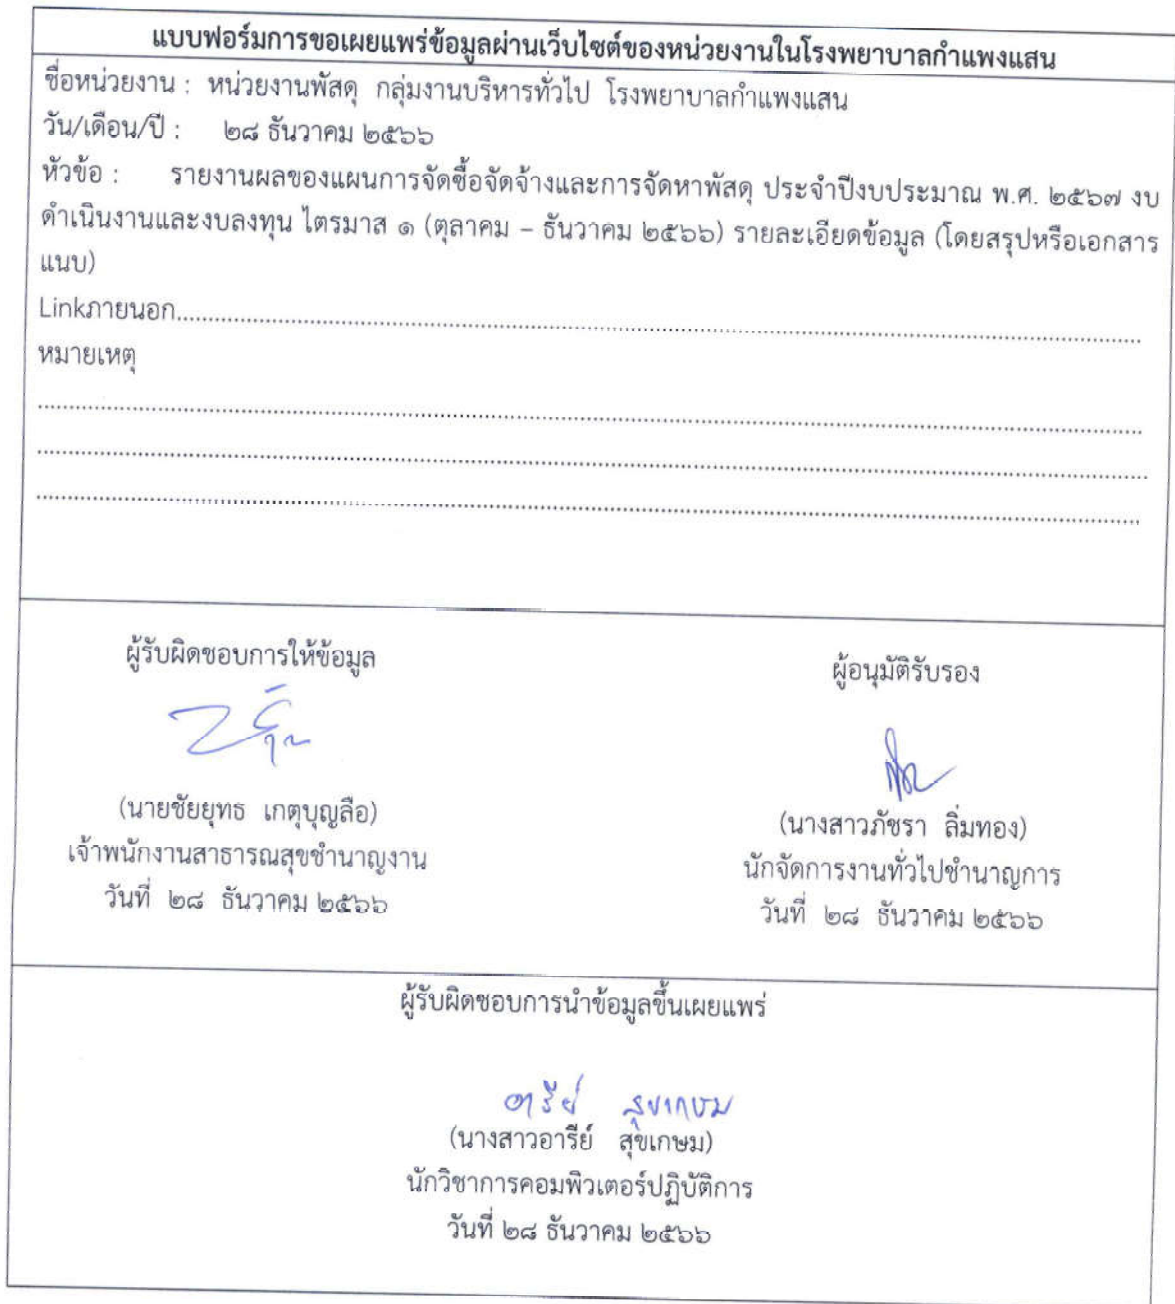 แบบฟอร์มการขอเผยแพร่ข้อมูลผ่านเว็บไซต์ของหน่วยงานในโรงพยาบาลกำแพงแสน
ชื่อหน่วยงาน : หน่วยงานพัสดุ กลุ่มงานบริหารทั่วไป โรงพยาบาลกำแพงแสน
วัน/เดือน/ปี : ๒๘ ธันวาคม ๒๕๖๖
หัวข้อ : รายงานผลของแผนการจัดซื้อจัดจ้างและการจัดหาพัสดุ ประจำปีงบประมาณ พ.ศ. ๒๕๖๗ งบ
ดำเนินงานและงบลงทุน ไตรมาส ๑ (ตุลาคม – ธันวาคม ๒๕๖๖) รายละเอียดข้อมูล (โดยสรุปหรือเอกสาร
แนบ)
Linkภายนอก
หมายเหตุ
ผู้รับผิดชอบการให้ข้อมูล
(นายชัยยุทธ เกตุบุญลือ)
เจ้าพนักงานสาธารณสุขชำนาญงาน
วันที่ ๒๘ ธันวาคม ๒๕๖๖
ผู้อนุมัติรับรอง
(นางสาวภัชรา ลิ่มทอง)
นักจัดการงานทั่วไปชำนาญการ
วันที่ ๒๘ ธันวาคม ๒๕๖๖
ผู้รับผิดชอบการนำข้อมูลขึ้นเผยแพร่
อารีย์ สุขเกษม
(นางสาวอารีย์ สุขเกษม)
นักวิชาการคอมพิวเตอร์ปฏิบัติการ
วันที่ ๒๘ ธันวาคม ๒๕๖๖